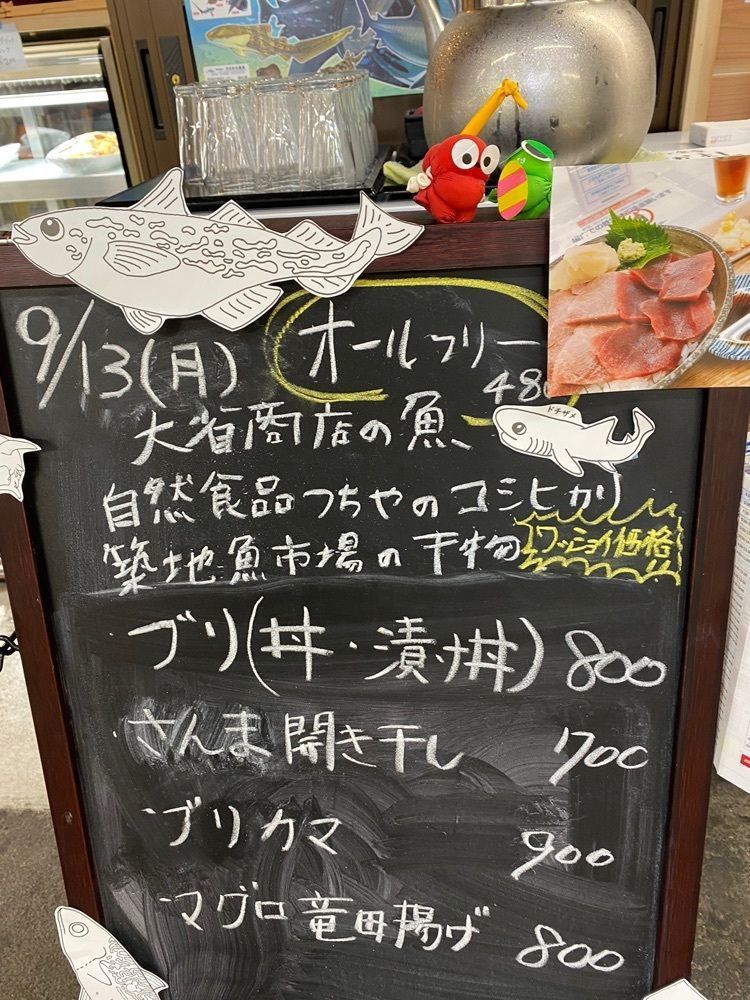 9/13(月)
オールフリー
48
大省商店の魚、
ドチザメ
自然食品つちやのコシヒカリ
築地魚市場の干物
ワッショイ価格
ブリ(丼・漬け丼) 800
・さんま開き干し 700
・ブリカマ 900
・マグロ竜田揚げ 800